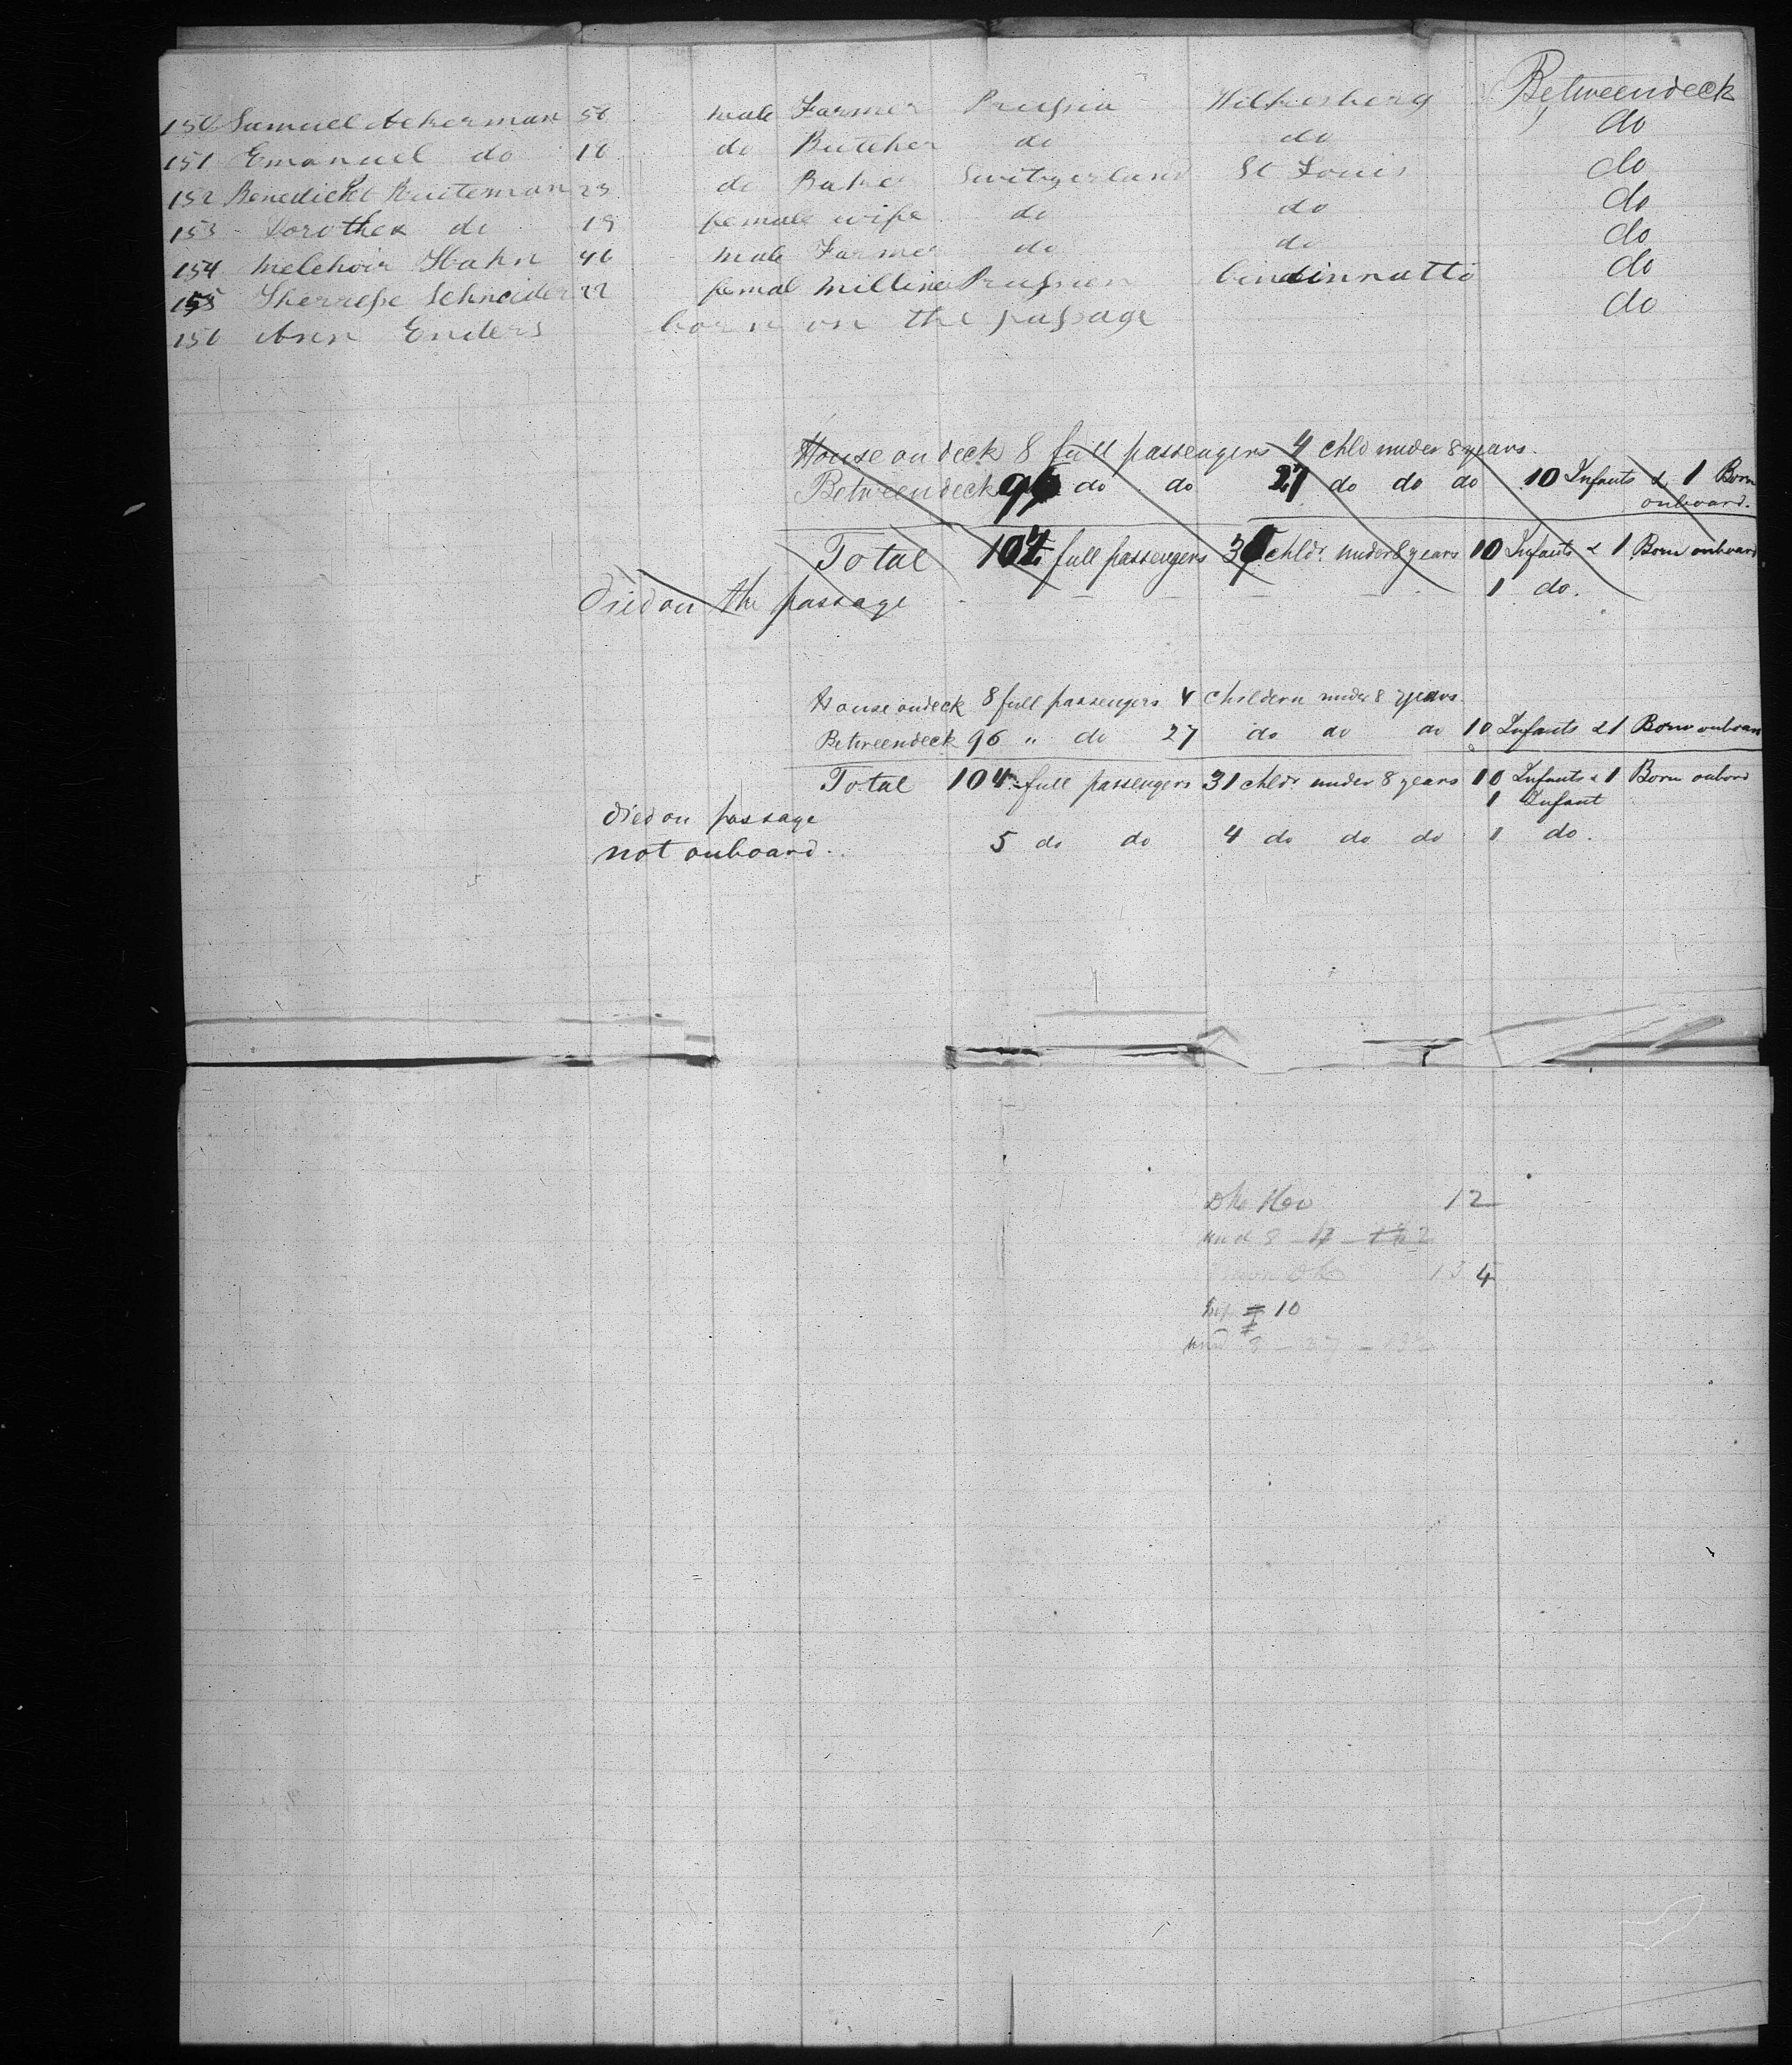 150 Samuel Ackerman 50 male Farmer Prussia Wilkesberg Betweendeck
151 Emanuel do 16 do Butcher do do do
152 Benedickt Ruiteman 23 do Baker Switzerland St Louis do
153 Dorothea do 19 female wife do do do
154 Melchoir Hahn 46 male Farmer do do do
155 Schneider 22 femal Milliner Prussien Cincinnatti do
156 Ann Enders born on the passage do
House on deck 8 full passengers 4 chld under 8 years.
Betweendeck 96 do do 27 do do do 10 Infants & 1 Born onboard.
Total 104 full passengers 31 chldr. under 8 years 10 Infants & 1 Born onboard
Died on the passage 1 do.
House ondeck 8 full passengers 4 childern under 8 years.
Betweendeck 96 " do 27 do do do 10 Infants & 1 Born onboard
Total 104 full passengers 31 chldr under 8 years 10 Infants & 1 Born onbord
died on passage 1 Infant
not onboard. 5 do do 4 do do do 1 do.
12
und 8
4
10